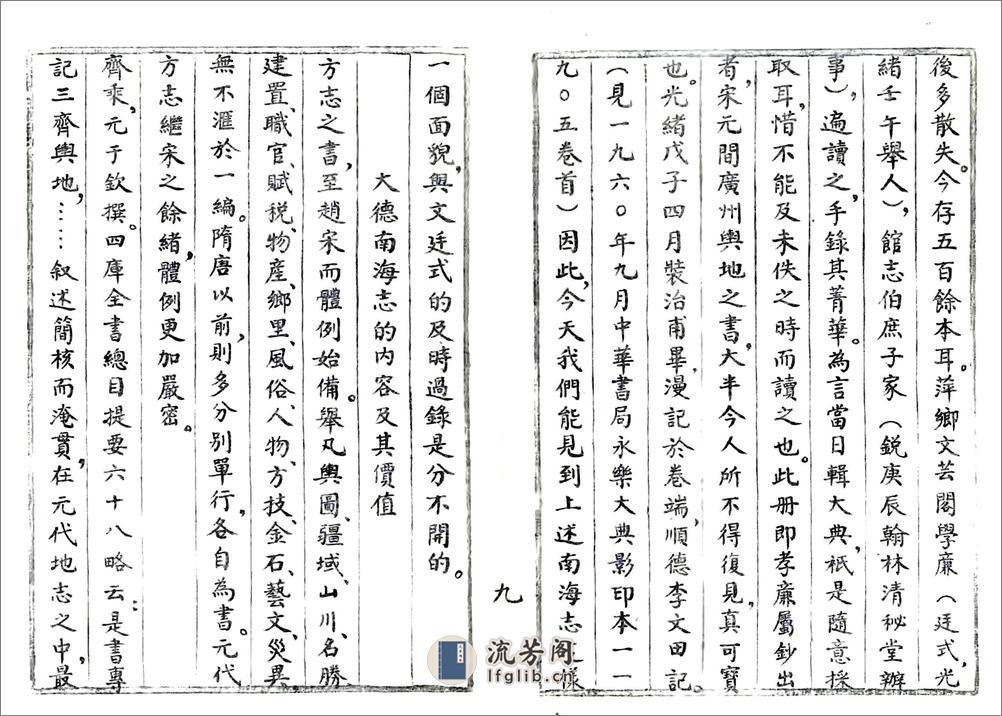 後多散失。今存五百餘本耳。萍鄉文芸閣學廉（廷式，光
緒壬午舉人），館志伯庶子家（銳庚辰翰林清祕堂辦
事），遍讀之，手錄其菁華。為言當日輯大典，祇是隨意採
取耳，惜不能及未佚之時而讀之也。此册即孝廉屬鈔出
者，宋元間廣州輿地之書，大半今人所不得復見，真可寶
也。光緒戊子四月裝治甫畢，漫記於卷端，順德李文田記。
（見一九六〇年九月中華書局永樂大典影印本一一
九〇五卷首）因此，今天我們能見到上述南海志這樣
九
一個面貌，與文廷式的及時過錄是分不開的。
大德南海志的内容及其價值
方志之書，至趙宋而體例始備。舉凡輿圖、疆域、山川、名勝、
建置、職官、賦税、物產、鄉里、風俗、人物、方技、金石、藝文、災異，
無不滙於一編。隋唐以前，則多分别單行，各自為書。元代
方志繼宋之餘緒，體例更加嚴密。
齊乘，元于欽撰。四庫全書總目提要六十八略云：是書專
記三齊輿地，……叙述簡核而淹貫，在元代地志之中，最
流芳阁
lfglib.cn